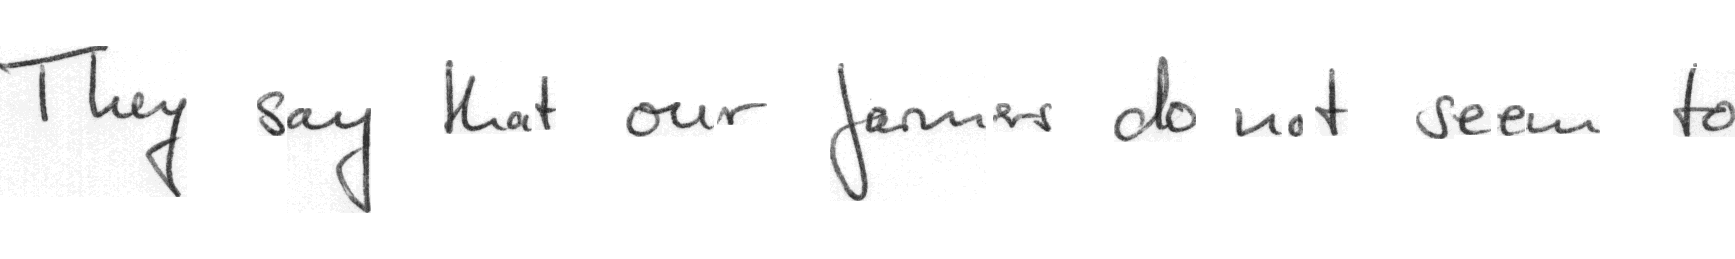 They say that our farmers do not seem to